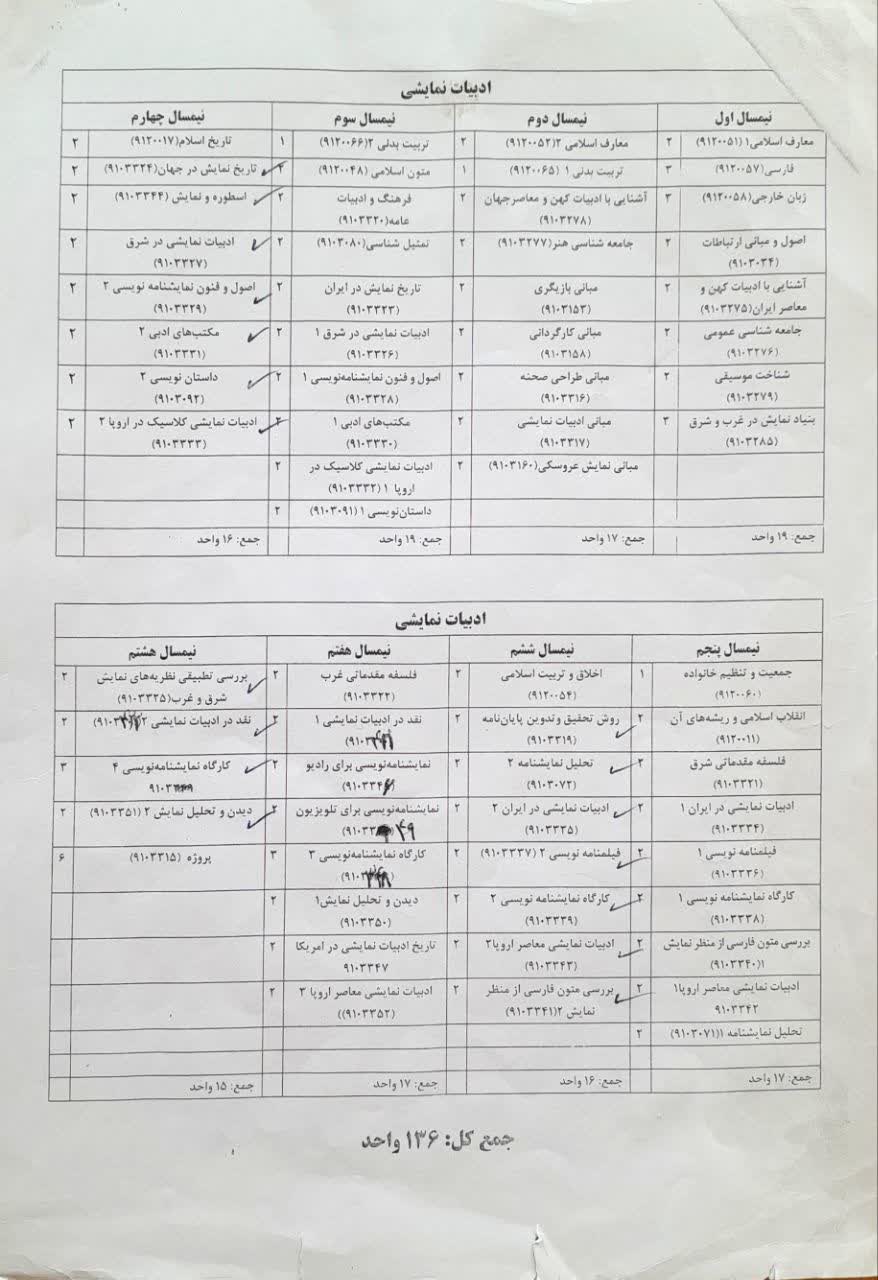 ادبیات نمایشی
نیمسال اول نیمسال دوم نیمسال سوم نیمسال چهارم
معارف اسلامی۱ (۹۱۲۰۰۵۱) ۲ معارف اسلامی ۲(۹۱۲۰۰۵۲) ۲ تربیت بدنی ۲(۹۱۲۰۰۶۶) ۱ تاریخ اسلام(۹۱۲۰۰۱۷) ۲
فارسی(۹۱۲۰۰۵۷) ۳ تربیت بدنی ۱ (۹۱۲۰۰۶۵) ۱ متون اسلامی (۹۱۲۰۰۴۸) ۲ تاریخ نمایش در جهان(۹۱۰۳۳۲۴) ۲
زبان خارجی(۹۱۲۰۰۵۸) ۳ آشنایی با ادبیات کهن و معاصرجهان ۲ فرهنگ و ادبیات ۲ اسطوره و نمایش (۹۱۰۳۳۴۴) ۲
(۹۱۰۳۲۷۸) عامه(۹۱۰۳۳۲۰)
اصول و مبانی ارتباطات ۲ جامعه شناسی هنر(۹۱۰۳۲۷۷) ۲ تمثیل شناسی(۹۱۰۳۰۸۰) ۲ ادبیات نمایشی در شرق ۲
(۹۱۰۳۰۳۴) (۹۱۰۳۳۲۷)
آشنایی با ادبیات کهن و ۲ مبانی بازیگری ۲ تاریخ نمایش در ایران ۲ اصول و فنون نمایشنامه نویسی ۲ ۲
معاصر ایران(۹۱۰۳۲۷۵) (۹۱۰۳۱۵۳) (۹۱۰۳۳۲۳) (۹۱۰۳۳۲۹)
جامعه شناسی عمومی ۲ مبانی کارگردانی ۲ ادبیات نمایشی در شرق ۱ ۲ مکتب‌های ادبی ۲ ۲
(۹۱۰۳۲۷۶) (۹۱۰۳۱۵۸) (۹۱۰۳۳۲۶) (۹۱۰۳۳۳۱)
شناخت موسیقی ۲ مبانی طراحی صحنه ۲ اصول و فنون نمایشنامه‌نویسی ۱ ۲ داستان نویسی ۲ ۲
(۹۱۰۳۲۷۹) (۹۱۰۳۳۱۶) (۹۱۰۳۳۲۸) (۹۱۰۳۰۹۲)
بنیاد نمایش در غرب و شرق ۳ مبانی ادبیات نمایشی ۲ مکتب‌های ادبی ۱ ۲ ادبیات نمایشی کلاسیک در اروپا ۲ ۲
(۹۱۰۳۲۸۵) (۹۱۰۳۳۱۷) (۹۱۰۳۳۳۰) (۹۱۰۳۳۳۳)
مبانی نمایش عروسکی(۹۱۰۳۱۶۰) ۲ ادبیات نمایشی کلاسیک در ۲
اروپا ۱ (۹۱۰۳۳۳۲)
داستان‌نویسی ۱ (۹۱۰۳۰۹۱) ۲
جمع: ۱۹ واحد جمع: ۱۷ واحد جمع: ۱۹ واحد جمع: ۱۶ واحد
ادبیات نمایشی
نیمسال پنجم نیمسال ششم نیمسال هفتم نیمسال هشتم
جمعیت و تنظیم خانواده ۱ اخلاق و تربیت اسلامی ۲ فلسفه مقدماتی غرب ۲ بررسی تطبیقی نظریه‌های نمایش ۲
(۹۱۲۰۰۶۰) (۹۱۲۰۰۵۴) (۹۱۰۳۳۲۲) شرق و غرب(۹۱۰۳۳۲۵)
انقلاب اسلامی و ریشه‌های آن ۲ روش تحقیق وتدوین پایان‌نامه ۲ نقد در ادبیات نمایشی ۱ ۲ نقد در ادبیات نمایشی ۲ ۲
(۹۱۲۰۰۱۱) (۹۱۰۳۳۱۹)
فلسفه مقدماتی شرق ۲ تحلیل نمایشنامه ۲ ۲ نمایشنامه‌نویسی برای رادیو ۲ کارگاه نمایشنامه‌نویسی ۴ ۳
(۹۱۰۳۳۲۱) (۹۱۰۳۰۷۲)
ادبیات نمایشی در ایران ۱ ۲ ادبیات نمایشی در ایران ۲ ۲ نمایشنامه‌نویسی برای تلویزیون ۲ دیدن و تحلیل نمایش ۲ (۹۱۰۳۳۵۱) ۲
(۹۱۰۳۳۳۴) (۹۱۰۳۳۳۵)
فیلمنامه نویسی ۱ ۲ فیلمنامه نویسی ۲ (۹۱۰۳۳۳۷) ۲ کارگاه نمایشنامه‌نویسی ۳ ۳ پروژه (۹۱۰۳۳۱۵) ۶
(۹۱۰۳۳۳۶)
کارگاه نمایشنامه نویسی ۱ ۲ کارگاه نمایشنامه نویسی ۲ ۲ دیدن و تحلیل نمایش۱ ۲
(۹۱۰۳۳۳۸) (۹۱۰۳۳۳۹) (۹۱۰۳۳۵۰)
بررسی متون فارسی از منظر نمایش ۲ ادبیات نمایشی معاصر اروپا۲ ۲ تاریخ ادبیات نمایشی در امریکا ۲
۱(۹۱۰۳۳۴۰) (۹۱۰۳۳۴۳) ۹۱۰۳۳۴۷
ادبیات نمایشی معاصر اروپا۱ ۲ بررسی متون فارسی از منظر ۲ ادبیات نمایشی معاصر اروپا ۳ ۲
۹۱۰۳۳۴۲ نمایش ۲(۹۱۰۳۳۴۱) (۹۱۰۳۳۵۲))
تحلیل نمایشنامه ۱(۹۱۰۳۰۷۱) ۲
جمع: ۱۷ واحد جمع: ۱۶ واحد جمع: ۱۷ واحد جمع: ۱۵ واحد
جمع کل: ۱۳۶ واحد